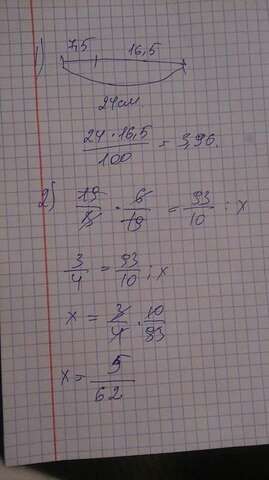 1) 7,5 16,5
24см
24 · 16,5 / 100 = 3,96.
2) 19/8 · 6/19 = 93/10 : x
3/4 = 93/10 : x
x = 3/4 · 10/93
x = 5/62